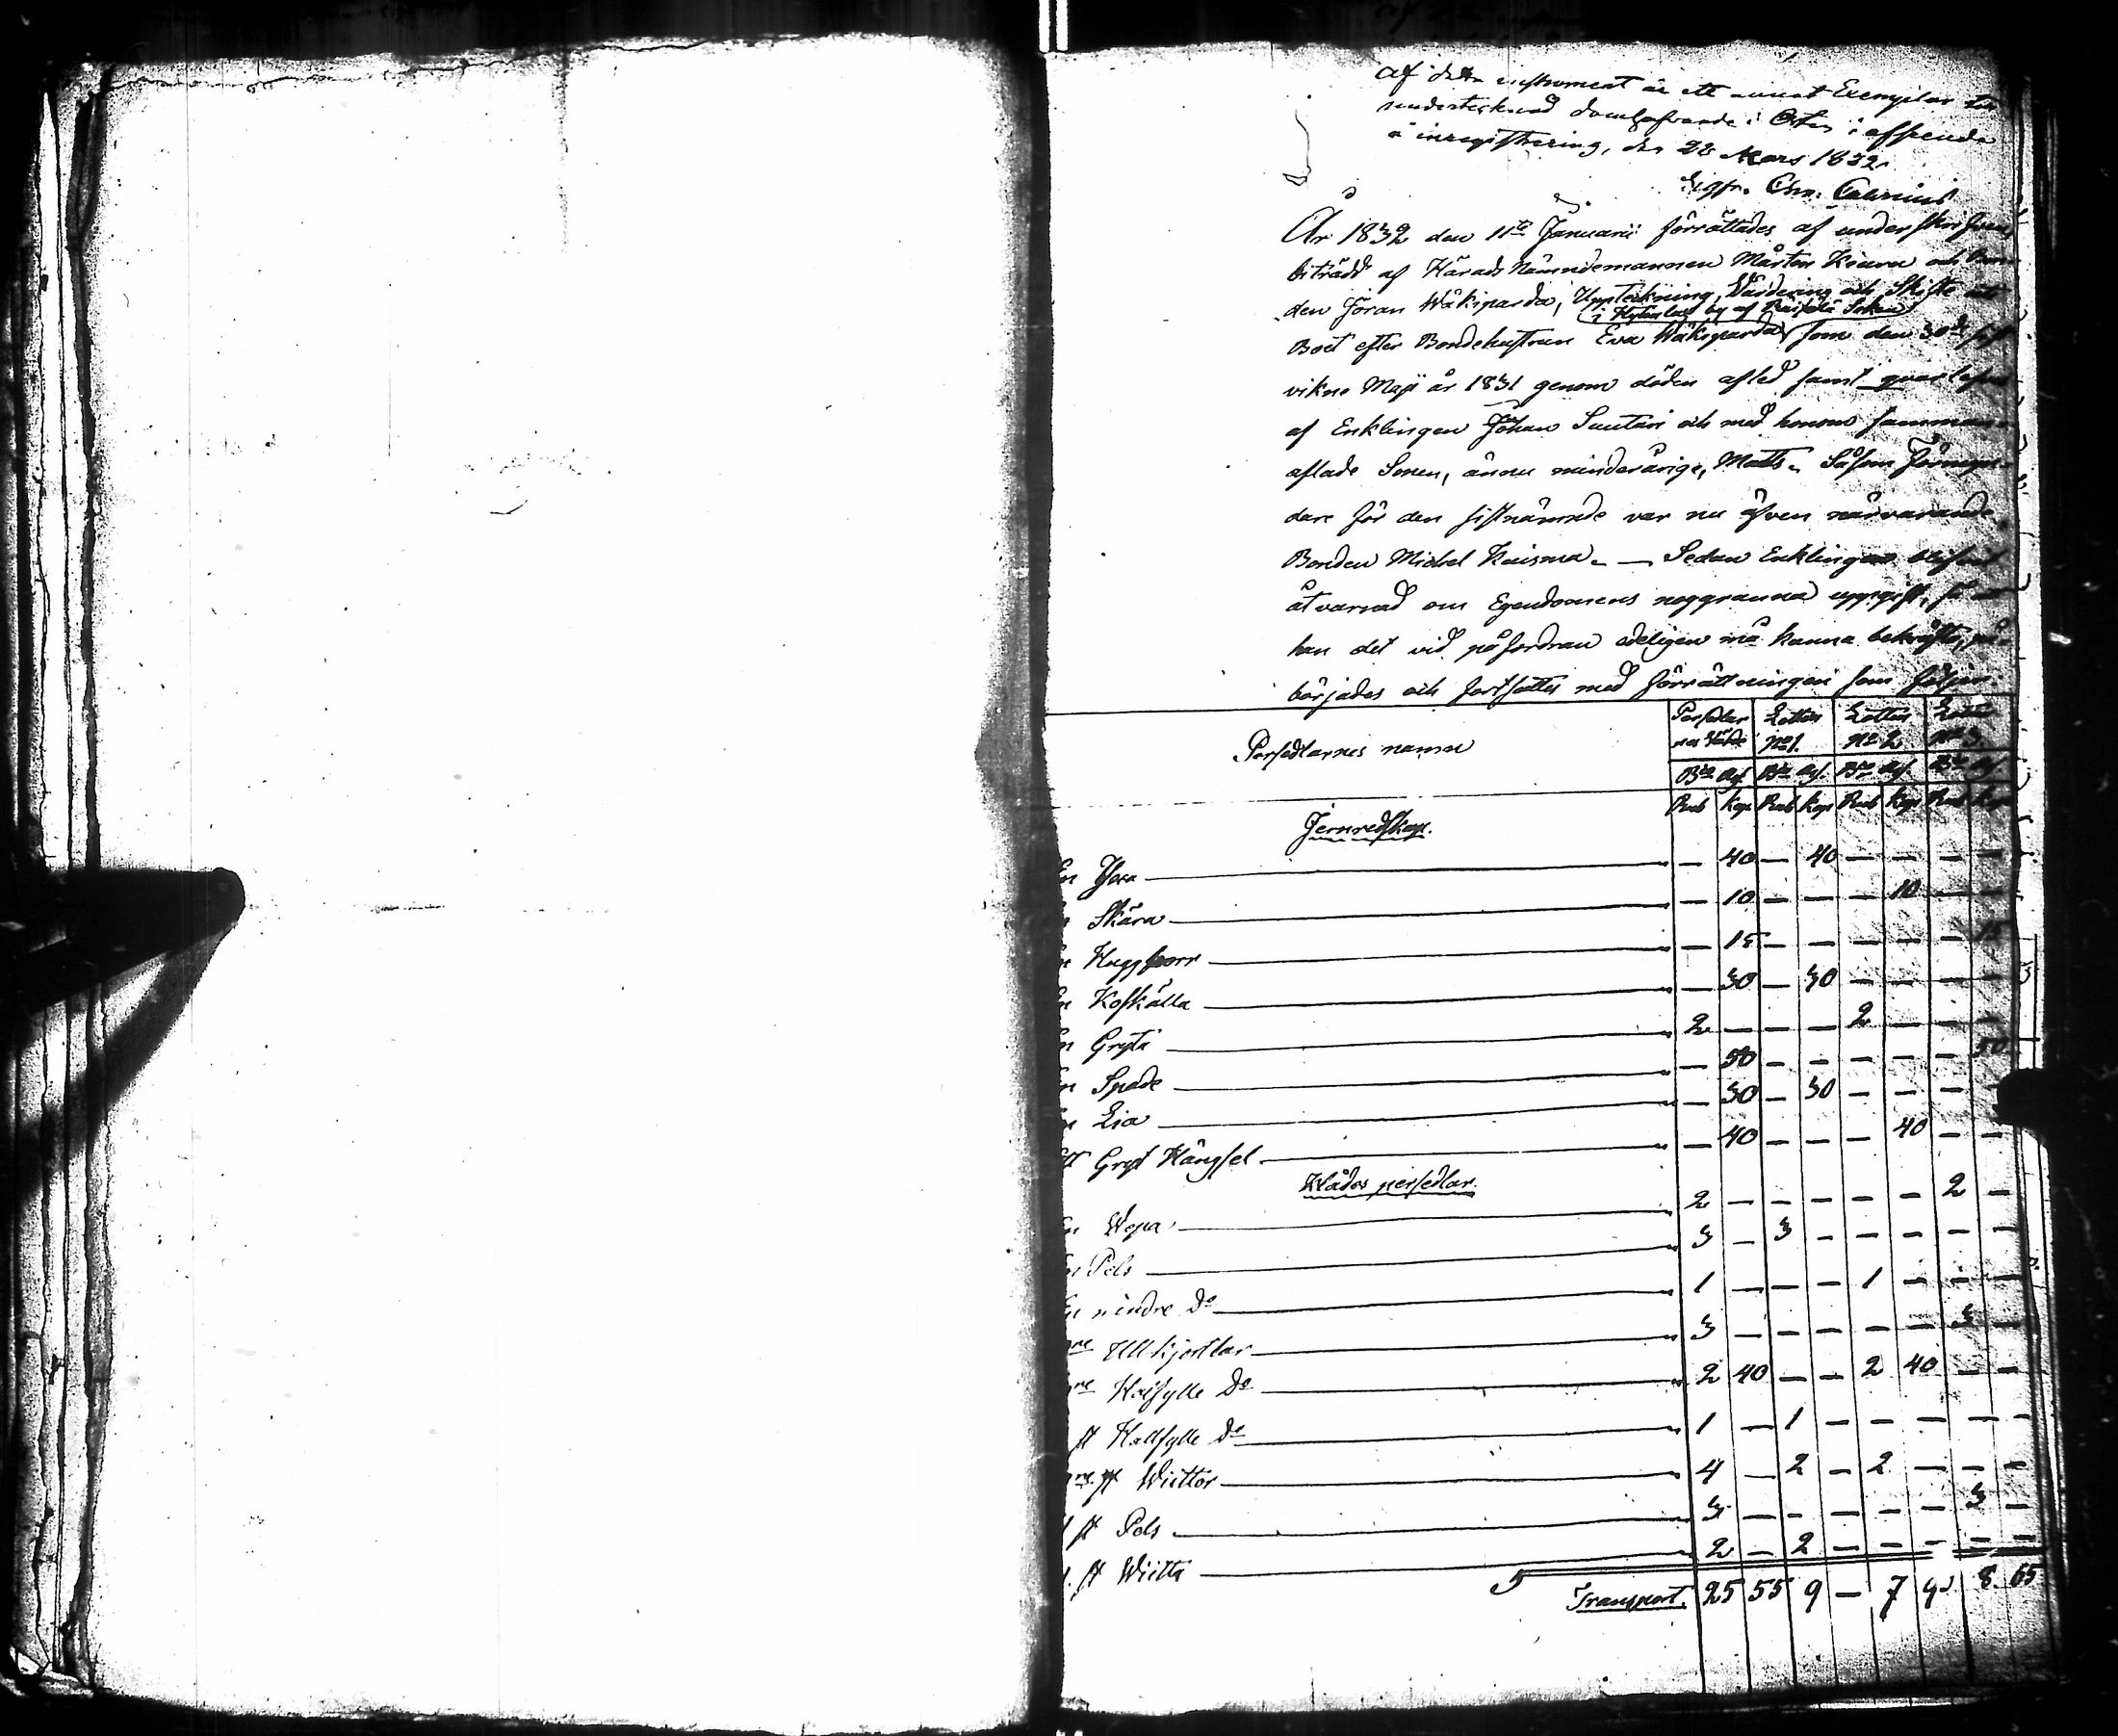 af detta instrument är ett annat Exemplar
undertecknad domhafvande i Orten
a inregistrering, den 28 Mars 1832.
År 1832 den 11te Januarii förrättades af
biträdd af Härads Nämndemannen Mårten Kiuru och Bon-
den Jöran Wäkiparda, Uppteckning, Wärdering och Skifte
by af Räisälä Sokn
Boet efter Bondehustrun Eva Wäkiparda som den 30de
vikne Maji år 1831 genom döden afled samt
af Enklingen Johan Santari och med honom samman-
aflade Sonen, ännu minderårige, Matts. Såsom Förmyn-
dare för den sistnämnde var nu äfven närvarande
Bonden Michel Kaisma. — Sedan Enklingen blifvit
åtvarnad om Egendomens noggranna uppgift, så att
han det vid påfordran edeligen må kunna bekräfta, på-
börjades och fortsattes med förrättningen som följer
Persedlarnes namn Persedlar nes Värde Lotten No 1. Lotten No 2 No 3
Bco Ass Bco Ass. Bco Ass. Bco Ass.
Rub kop Rub kop Rub kop Rub kop
Jernredskap.
En Yxa — 40 — 40 — — — —
Skära — 10 — — — 10 — —
— 15 — — — — — 15
Koskälla — 30 — 30 — — — —
Gryta 2 — — — 2 — — —
Spade — 50 — — — — — 50
Lia — 30 — 30 — — — —
Ett Gryt Hängsel — 40 — — — 40 — —
Klädes persedlar.
Wepa 2 — — — — — 2 —
Pels 3 — 3 — — — — —
En mindre Do 1 — — — 1 — — —
Ull kjortlar 3 — — — — — 3 —
Halfylle Do 2 40 — — 2 40 — —
st Halfylle Do 1 — 1 — — — — —
st Wiittor 4 — 2 — 2 — — —
st Pels 3 — — — — — 3 —
st Wiitta 2 — 2 — — — — —
Transport. 25 55 9 — 7 90 8 65